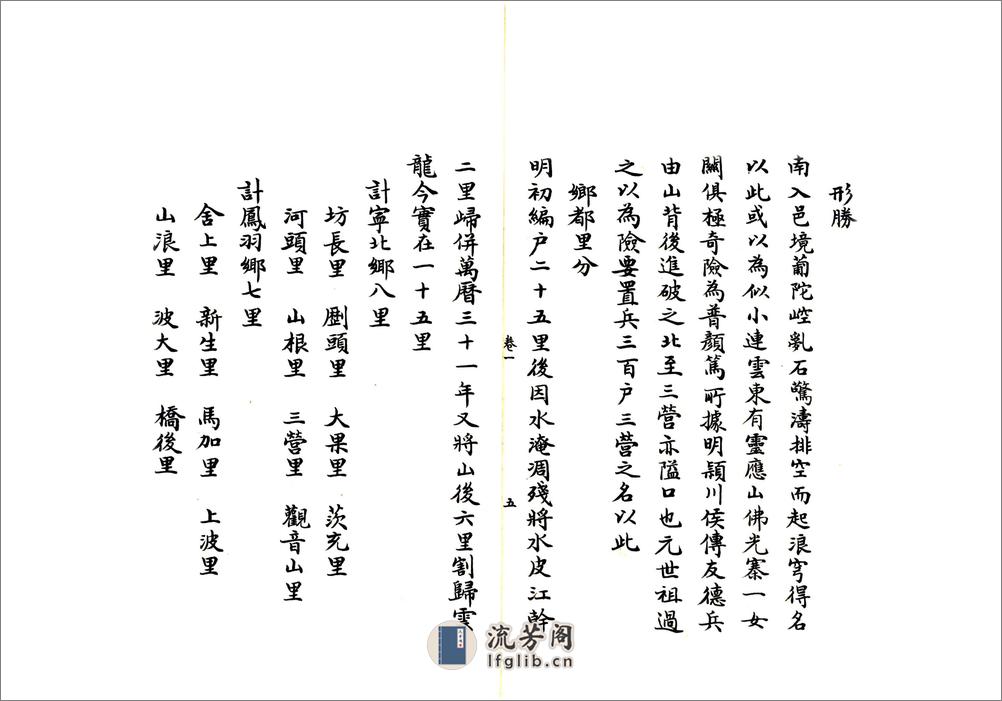 形勝
南入邑境葡陀崆亂石驚濤排空而起浪穹得名
以此或以為似小連雲東有靈應山佛光寨一女
關俱極奇險為普顏篤所據明潁川侯傅友德兵
由山背後進破之北至三營亦隘口也元世祖過
之以為險要置兵三百户三營之名以此
鄉都里分
明初編户二十五里後因水淹凋殘將水皮江幹
二里歸併萬曆三十一年又將山後六里割歸雲
龍今實在一十五里
計寧北鄉八里
坊長里 㔉頭里 大果里 茨充里
河頭里 山根里 三營里 觀音山里
計鳳羽鄉七里
舍上里 新生里 馬加里 上波里
山浪里 波大里 橋後里
卷一
五
流芳阁
lfglib.cn